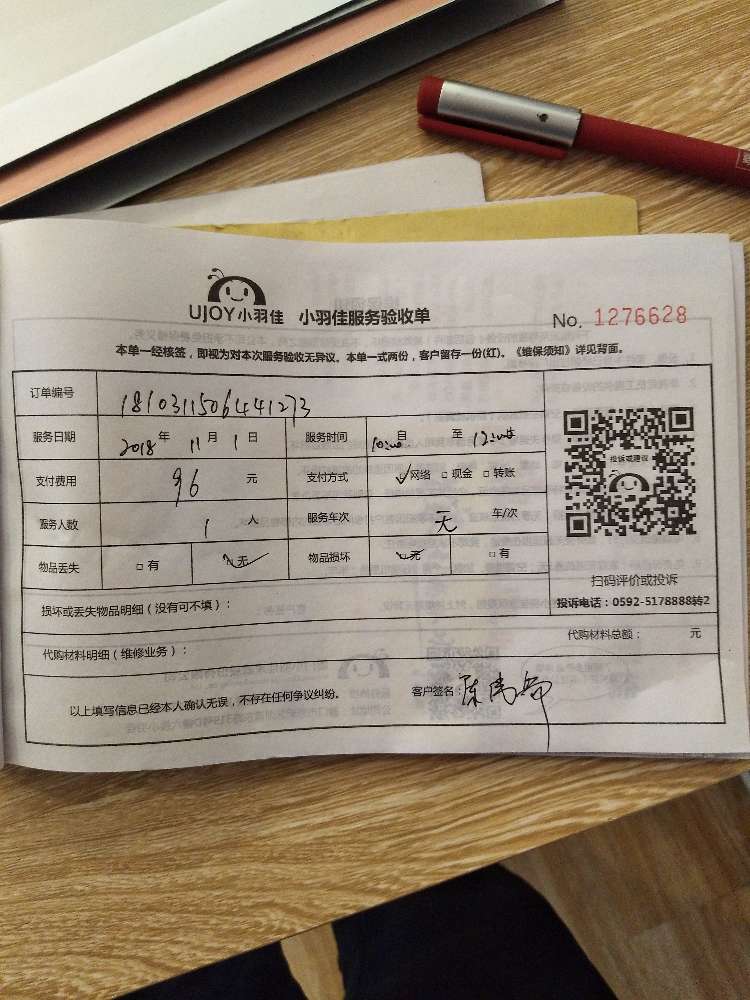 UJOY小羽佳 小羽佳服务验收单 No. 1276628
本单一经核签，即视为对本次服务验收无异议。本单一式两份，客户留存一份(红)。《维保须知》详见背面。
订单编号 1810311506441273
服务日期 2018年 11月 1日 服务时间 10:00 自 至 12:00
支付费用 96 元 支付方式 ✓网络 □现金 □转账
服务人数 1 人 服务车次 无 车/次
投诉或建议
物品丢失 □有 ✓无 物品损坏 ✓无 □有
扫码评价或投诉
投诉电话：0592-5178888转2
损坏或丢失物品明细（没有可不填）：
代购材料明细（维修业务）： 代购材料总额： 元
以上填写信息已经本人确认无误，不存在任何争议纠纷。 客户签名：